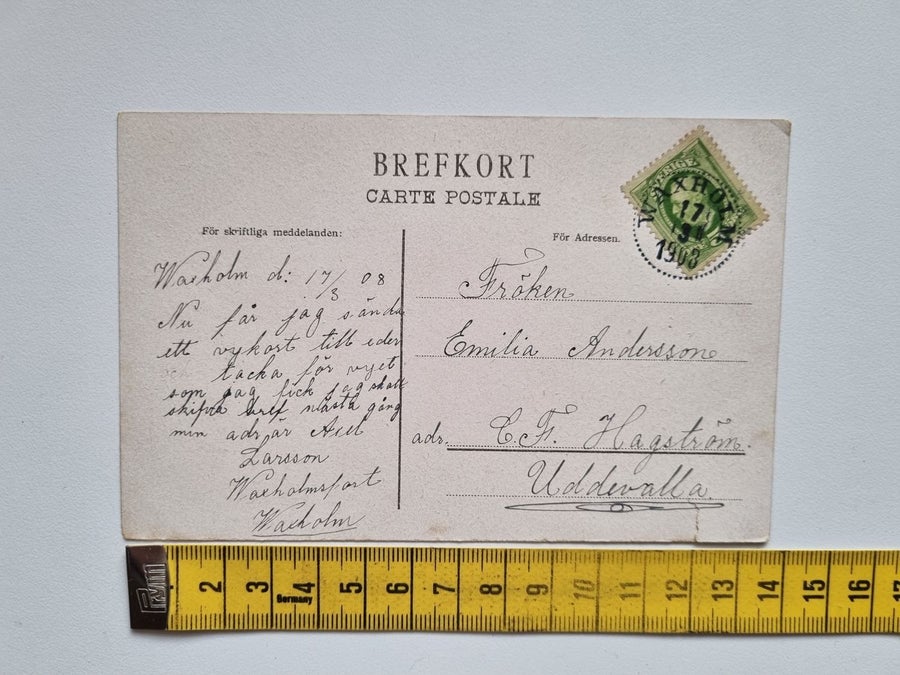 BREFKORT
CARTE POSTALE
För skriftliga meddelanden:
För Adressen.
SVERIGE
WAXHOLM
17
1908
Waxholm d: 17/3 08
Nu får jag sända
ett vykort till eder
och tacka för vyet
som jag fick jag skall
skifva bref nästa gång
min adr är Axel
Larsson
Waxholmsfort
Waxholm
Fröken
Emilia Andersson
adr. C. F. Hagström.
Uddevalla.
2 3 4 5 6 7 8 9 10 11 12 13 14 15 16 17
Germany